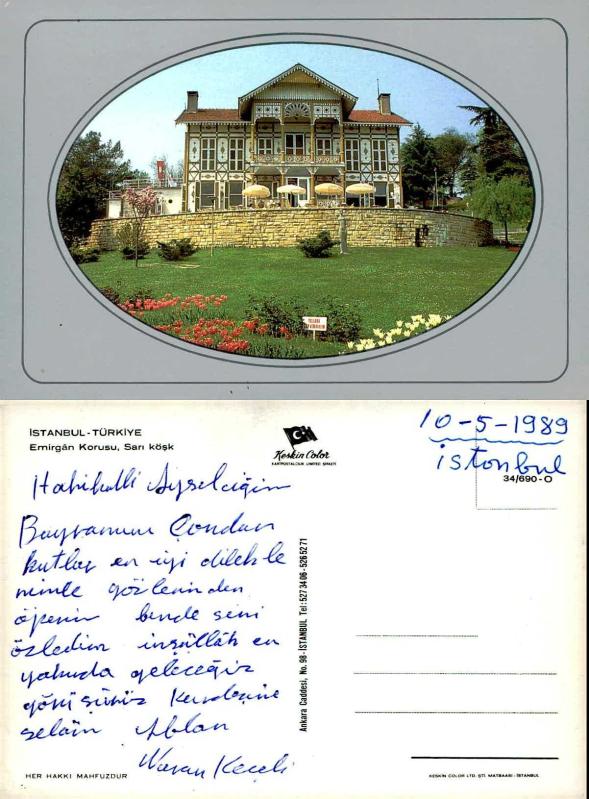 İSTANBUL-TÜRKİYE
Emirgân Korusu, Sarı köşk
Keskin Color
KARTPOSTALCILIK LIMITED ŞİRKETİ
10-5-1989
istonbul
34/690-O
Ayselciğim
Bayramını Candan
kutlar en iyi dilekle
rimle gözlerinden
öperim bende seni
özledim inşallah en
yakında geleceğiz
görüşürüz Kardeşine
selâm Ablan
Keçeli
Ankara Caddesi, No. 98-İSTANBUL Tel: 5273406-5265271
HER HAKKI MAHFUZDUR
KESKİN COLOR LTD. ŞTİ. MATBAASI-İSTANBUL